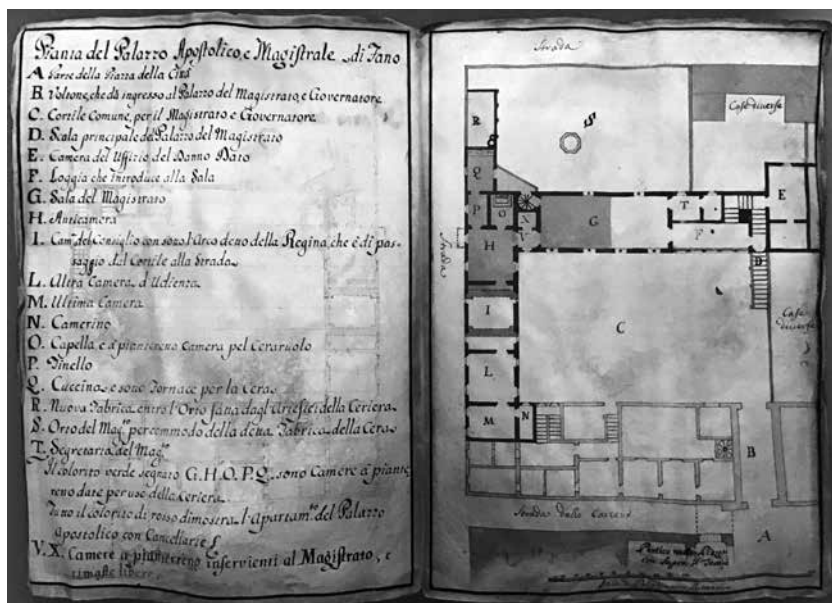 Pianta del Palazzo Apostolico, e Magistrale di Fano
A Parte della Piazza della Città
B Voltone, che dà ingresso al Palazzo del Magistrato, e Governatore
C. Cortile Comune, per il Magistrato e Governatore
D. Scala principale del Palazzo del Magistrato
E. Camera del Uffizio del Danno Dato
F. Loggia che introduce alla Sala
G. Sala del Magistrato
H. Anticamera
I. Cam.ª del Consiglio con sotto l'Arco detto della Regina, che è di pas-
saggio dal Cortile alla Strada
L. Altra Camera d'Udienza
M. Ultima Camera
N. Camerino
O. Capella e à pianterreno Camera pel Ceraruolo
P. Tinello
Q. Cuccina, e sotto Fornace per la Cera
R. Nuova Fabrica entro l'Orto fatta dagl'Artefici della Ceriera
S. Orto del Mag.to per commodo della detta Fabrica della Cera
T. Segretaria del Mag.to
Il colorito verde segnato G. H. O. P. Q. sono Camere à piante,
reno date per uso della Ceriera.
Tutto il colorito di rosso dimostra l'Apartam.to del Palazzo
Apostolico con Cancellarie &
V. X. Camere à pianterreno inservienti al Magistrato, e
rimaste libere.
Strada
Case diverse
R
S
Q
P
O
X
V
G
T
E
F
H
D
Strada
I
C
Case
diverse
L
M
N
B
Strada delle Carceri
A